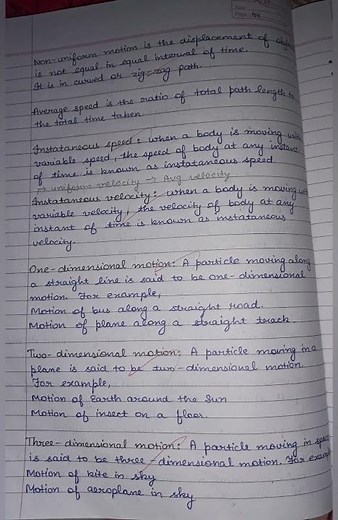 Non-uniform motion is the displacement of
is not equal in equal interval of time.
It is in curved or zig-zag path.
Average speed is the ratio of total path length to
the total time taken.
Instataneous speed: when a body is moving with
variable speed, the speed of body at any instant
of time is known as instataneous speed
→ uniform velocity → Avg velocity
Instataneous velocity: when a body is moving with
variable velocity, the velocity of body at any
instant of time is known as instataneous
velocity.
One-dimensional motion: A particle moving along
a straight line is said to be one-dimensional
motion. For example,
Motion of bus along a straight road.
Motion of plane along a straight track.
Two-dimensional motion: A particle moving in a
plane is said to be two-dimensional motion.
For example,
Motion of Earth around the Sun
Motion of insect on a floor.
Three-dimensional motion: A particle moving in space
is said to be three-dimensional motion. For example
Motion of kite in sky
Motion of aeroplane in sky